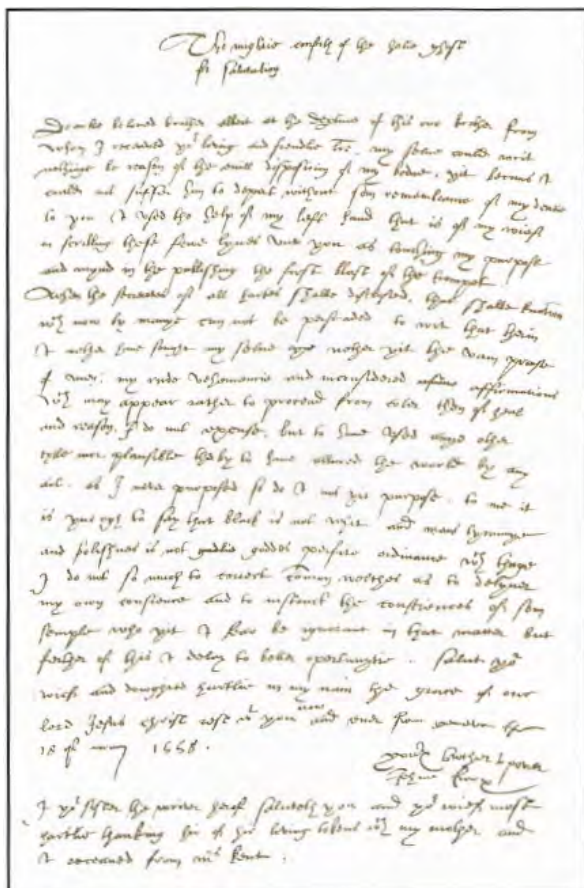 The mightie conforth of the holie ghost
for salutation
Dearlie beloved brother albeit at the departure of this our brother from
whom I receaved yor loving and frendlie lre. my selve could writ
nothing be reason of the evill disposition of my bodie. yit becaus I
could not suffer him to depart without som remembrance of my deutie
to you I used the help of my left hand that is of my wief
in scribling these fewe lynes unto you as touching my purpose
and mynd in the publishing the first blast of the trompet.
When the secreates of all hartes shalbe disclosed, that shalbe knowen
wch now by manye can not be perswaded to wit that therin
I nether have sought my selve nether yit the vain praise
of men: my rude vehemencie and inconsidered affirmations
wch may appear rather to procead from coler then of zeal
and reason, I do not excuse: but to have used anye other
title mor plausible therby to have allured the world by any
art. as I never purposed so do I not yit purpose. to me it
is ynewgh to say that black is not whit and mans tyrannye
and folishnes is not goddes perfite ordinance wch thinge
I do not so much to correct comon welthes as to delyver
my own conscience and to instruct the consciences of som
semple who yit I fear be ignorant in that matter but
ferther of this I delay to better oportunytie. Salut yor
wief and dowghter hartlie in my nam the grace of our
lord Jesus christ rest wt you now and ever from geneva the
18 of may 1558.
your brother to power
Johne Knox
I yor sister the writer herof saluteth you and yor wief most
hartlie thanking hir of hir loving tokens wch my mother and
I receaved from mrs kent: